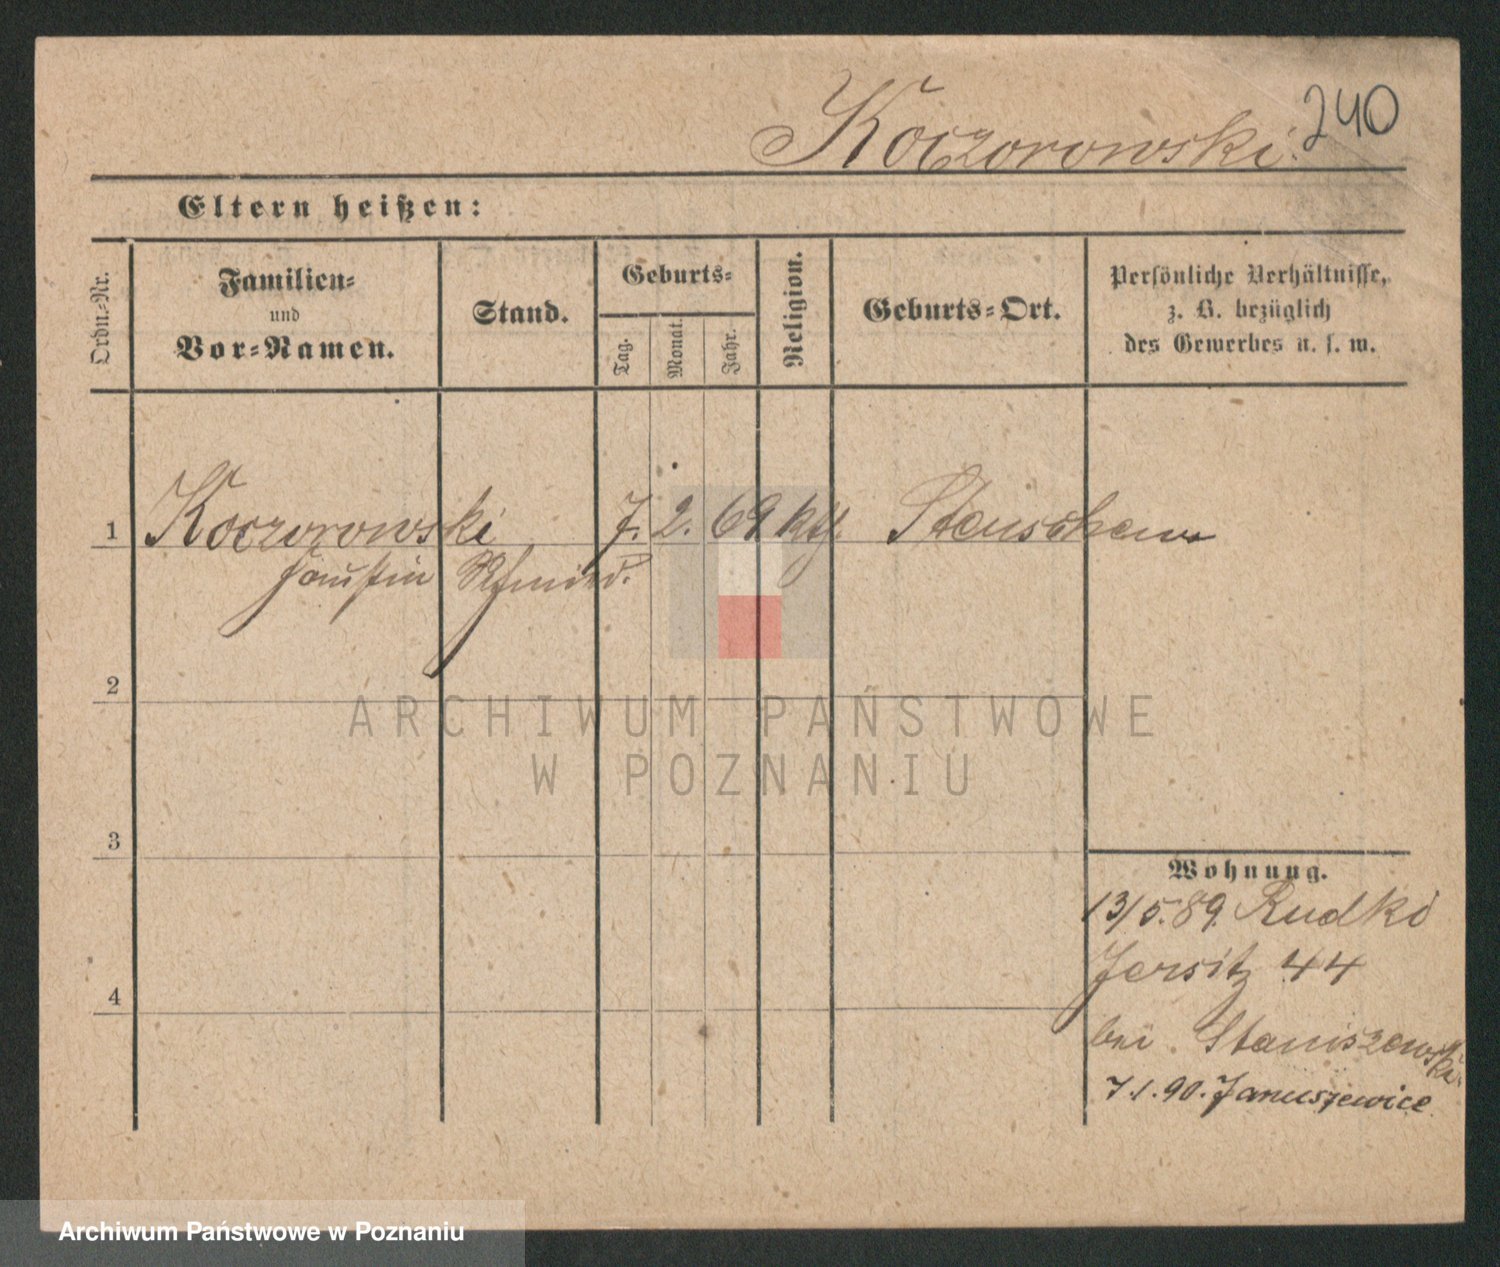 Koczorowski.
240
Eltern heißen:
Ordn.-Nr.
Familien-
und
Vor-Namen.
Stand.
Geburts-
Tag.
Monat.
Jahr.
Religion.
Geburts-Ort.
Persönliche Verhältnisse,
z. B. bezüglich
des Gewerbes u. s. w.
1 Koczorowski 7. 2. 69 kth. Stenschewo
Faustin Schmied.
2
3
4
Wohnung.
13/5.89. Rudki
Jersitz 44
bei Staniszewski
7.1.90. Januszewice
ARCHIWUM PAŃSTWOWE
W POZNANIU
Archiwum Państwowe w Poznaniu